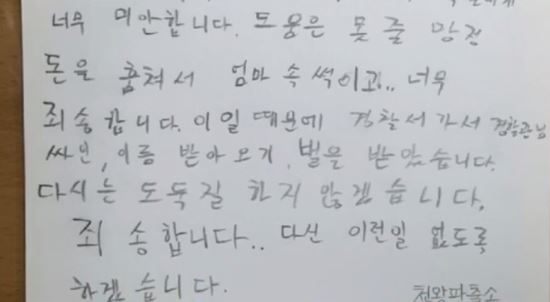 너무 미안합니다. 도움은 못 줄 망정
돈을 훔쳐서 엄마 속 썩이고.. 너무
죄송합니다. 이일 때문에 경찰서 가서 경찰관님
싸인, 이름 받아오기, 벌을 받았습니다.
다시는 도둑질 하지 않겠습니다.
죄송합니다.. 다신 이런일 없도록
하겠습니다.
천왕파출소